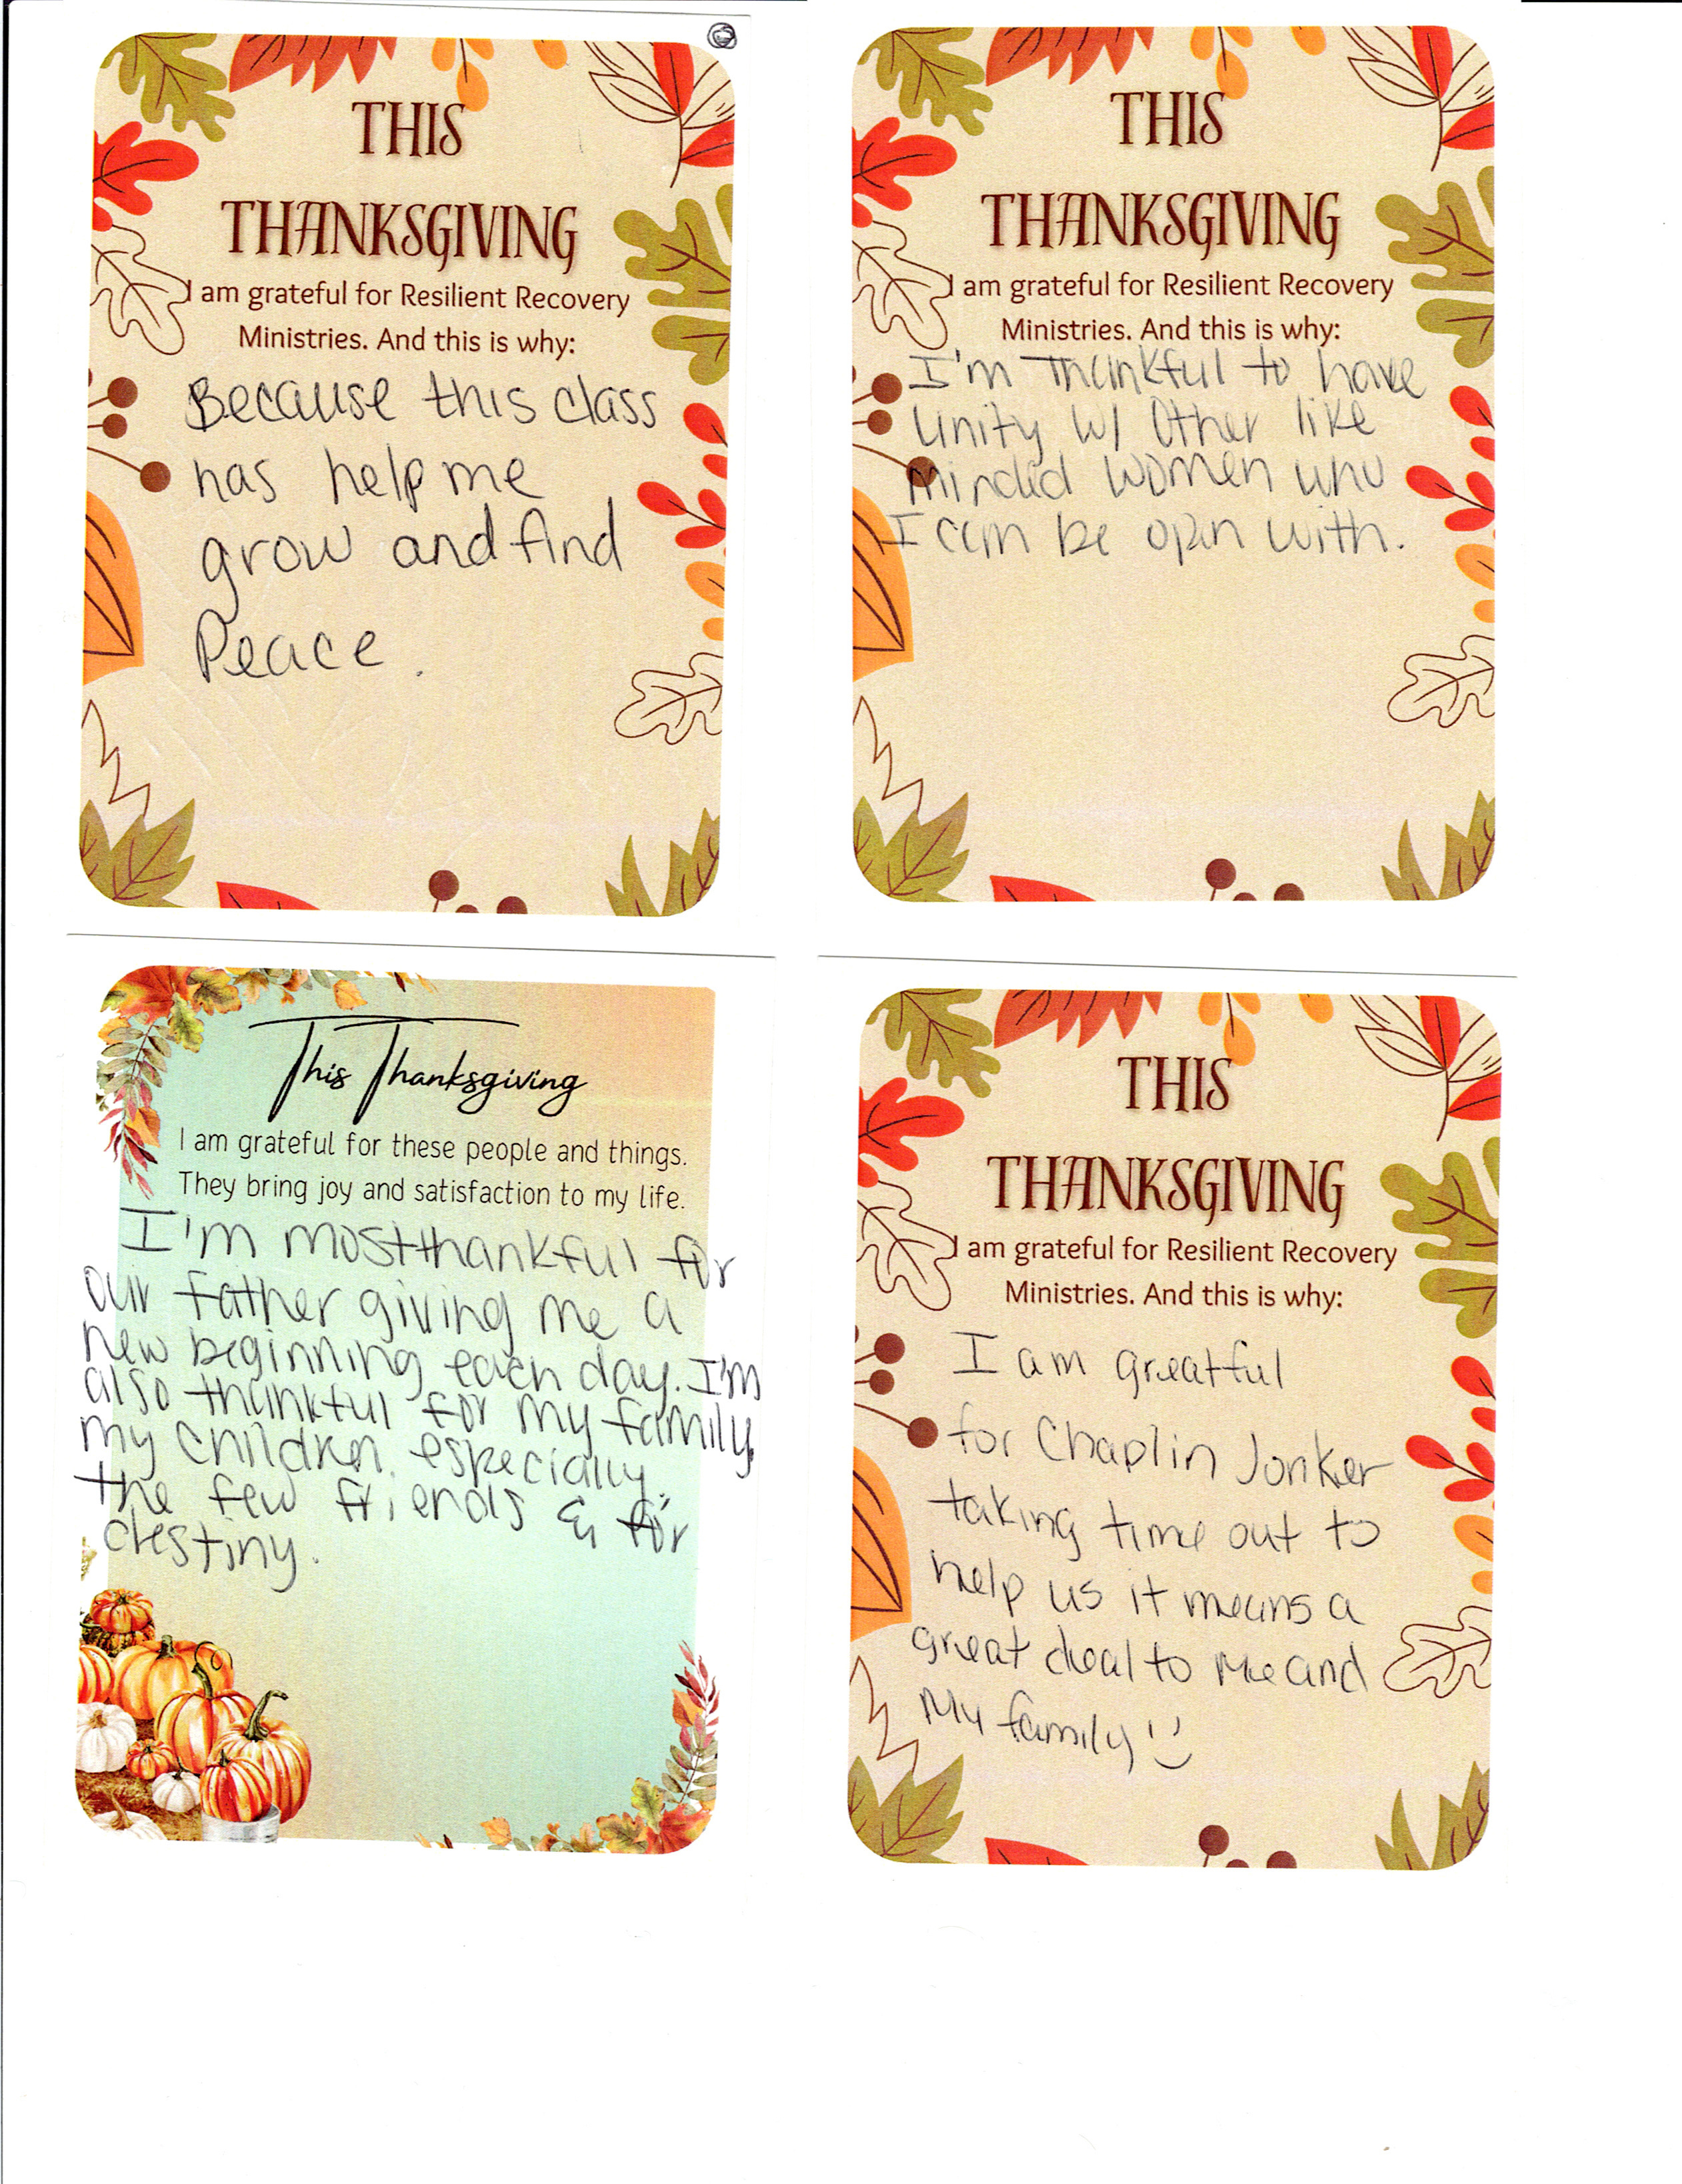 THIS
THANKSGIVING
I am grateful for Resilient Recovery
Ministries. And this is why:
Because this class
has help me
grow and find
Peace.
THIS
THANKSGIVING
I am grateful for Resilient Recovery
Ministries. And this is why:
I'm thankful to have
unity w/ Other like
minded women who
I can be open with.
This Thanksgiving
I am grateful for these people and things.
They bring joy and satisfaction to my life.
I'm most thankful for
our father giving me a
new beginning each day. I'm
also thankful for my family,
my children, especially.
the few friends & for
destiny.
THIS
THANKSGIVING
I am grateful for Resilient Recovery
Ministries. And this is why:
I am greatful
for Chaplin Jonker
taking time out to
help us it means a
great deal to me and
My family